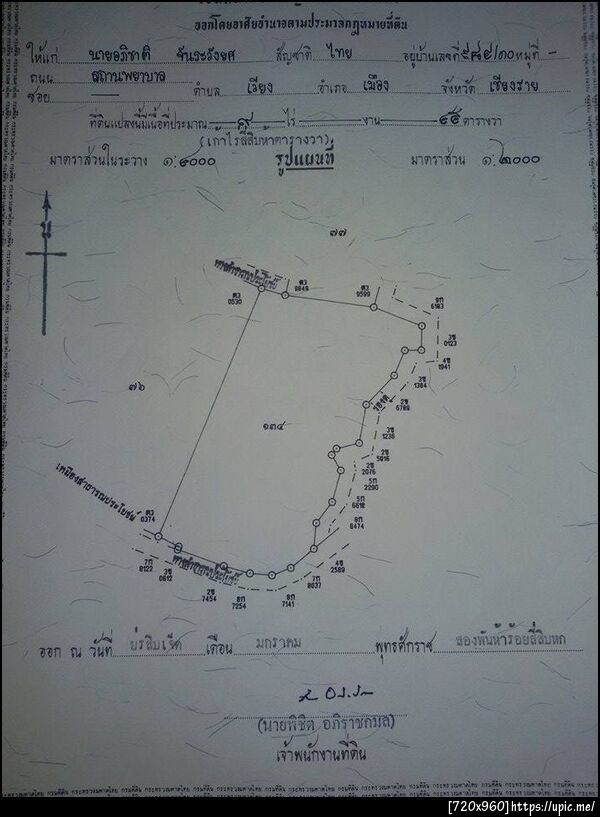 ออกโดยอาศัยอำนาจตามประมวลกฎหมายที่ดิน
ให้แก่ นายอภิชาติ จันระวังยศ สัญชาติ ไทย อยู่บ้านเลขที่ ๙๘๙/๑๐ หมู่ที่ -
ถนน สถานพยาบาล
ซอย — ตำบล เวียง อำเภอ เมือง จังหวัด เชียงราย
ที่ดินแปลงนี้มีเนื้อที่ประมาณ ๙ ไร่ - งาน ๔๕ ตารางวา
(เก้าไร่สี่สิบห้าตารางวา)
มาตราส่วนในระวาง ๑:๔๐๐๐ รูปแผนที่ มาตราส่วน ๑:๒๐๐๐
น
๗๗
ทางสาธารณประโยชน์
ตว 0530
ตว 9849
ตว 9599
9ก 6183
3ช 0123
4ช 1941
3ช 1384
๗๖
ร่องคู
2ช 6789
๑๓๔
3ช 1236
2ช 5916
2ช 2076
5ก 2290
เหมืองสาธารณประโยชน์
ตว 0374
5ก 6618
8ก 8474
ทางสาธารณประโยชน์
7ก 0122
3ช 0612
4ช 2589
7ก 8037
2ช 7454
8ก 7254
8ก 7141
ออก ณ วันที่ ยี่สิบเจ็ด เดือน มกราคม พุทธศักราช สองพันห้าร้อยสี่สิบหก
(นายพิชิต อภิราชกมล)
เจ้าพนักงานที่ดิน
[720x960]https://upic.me/